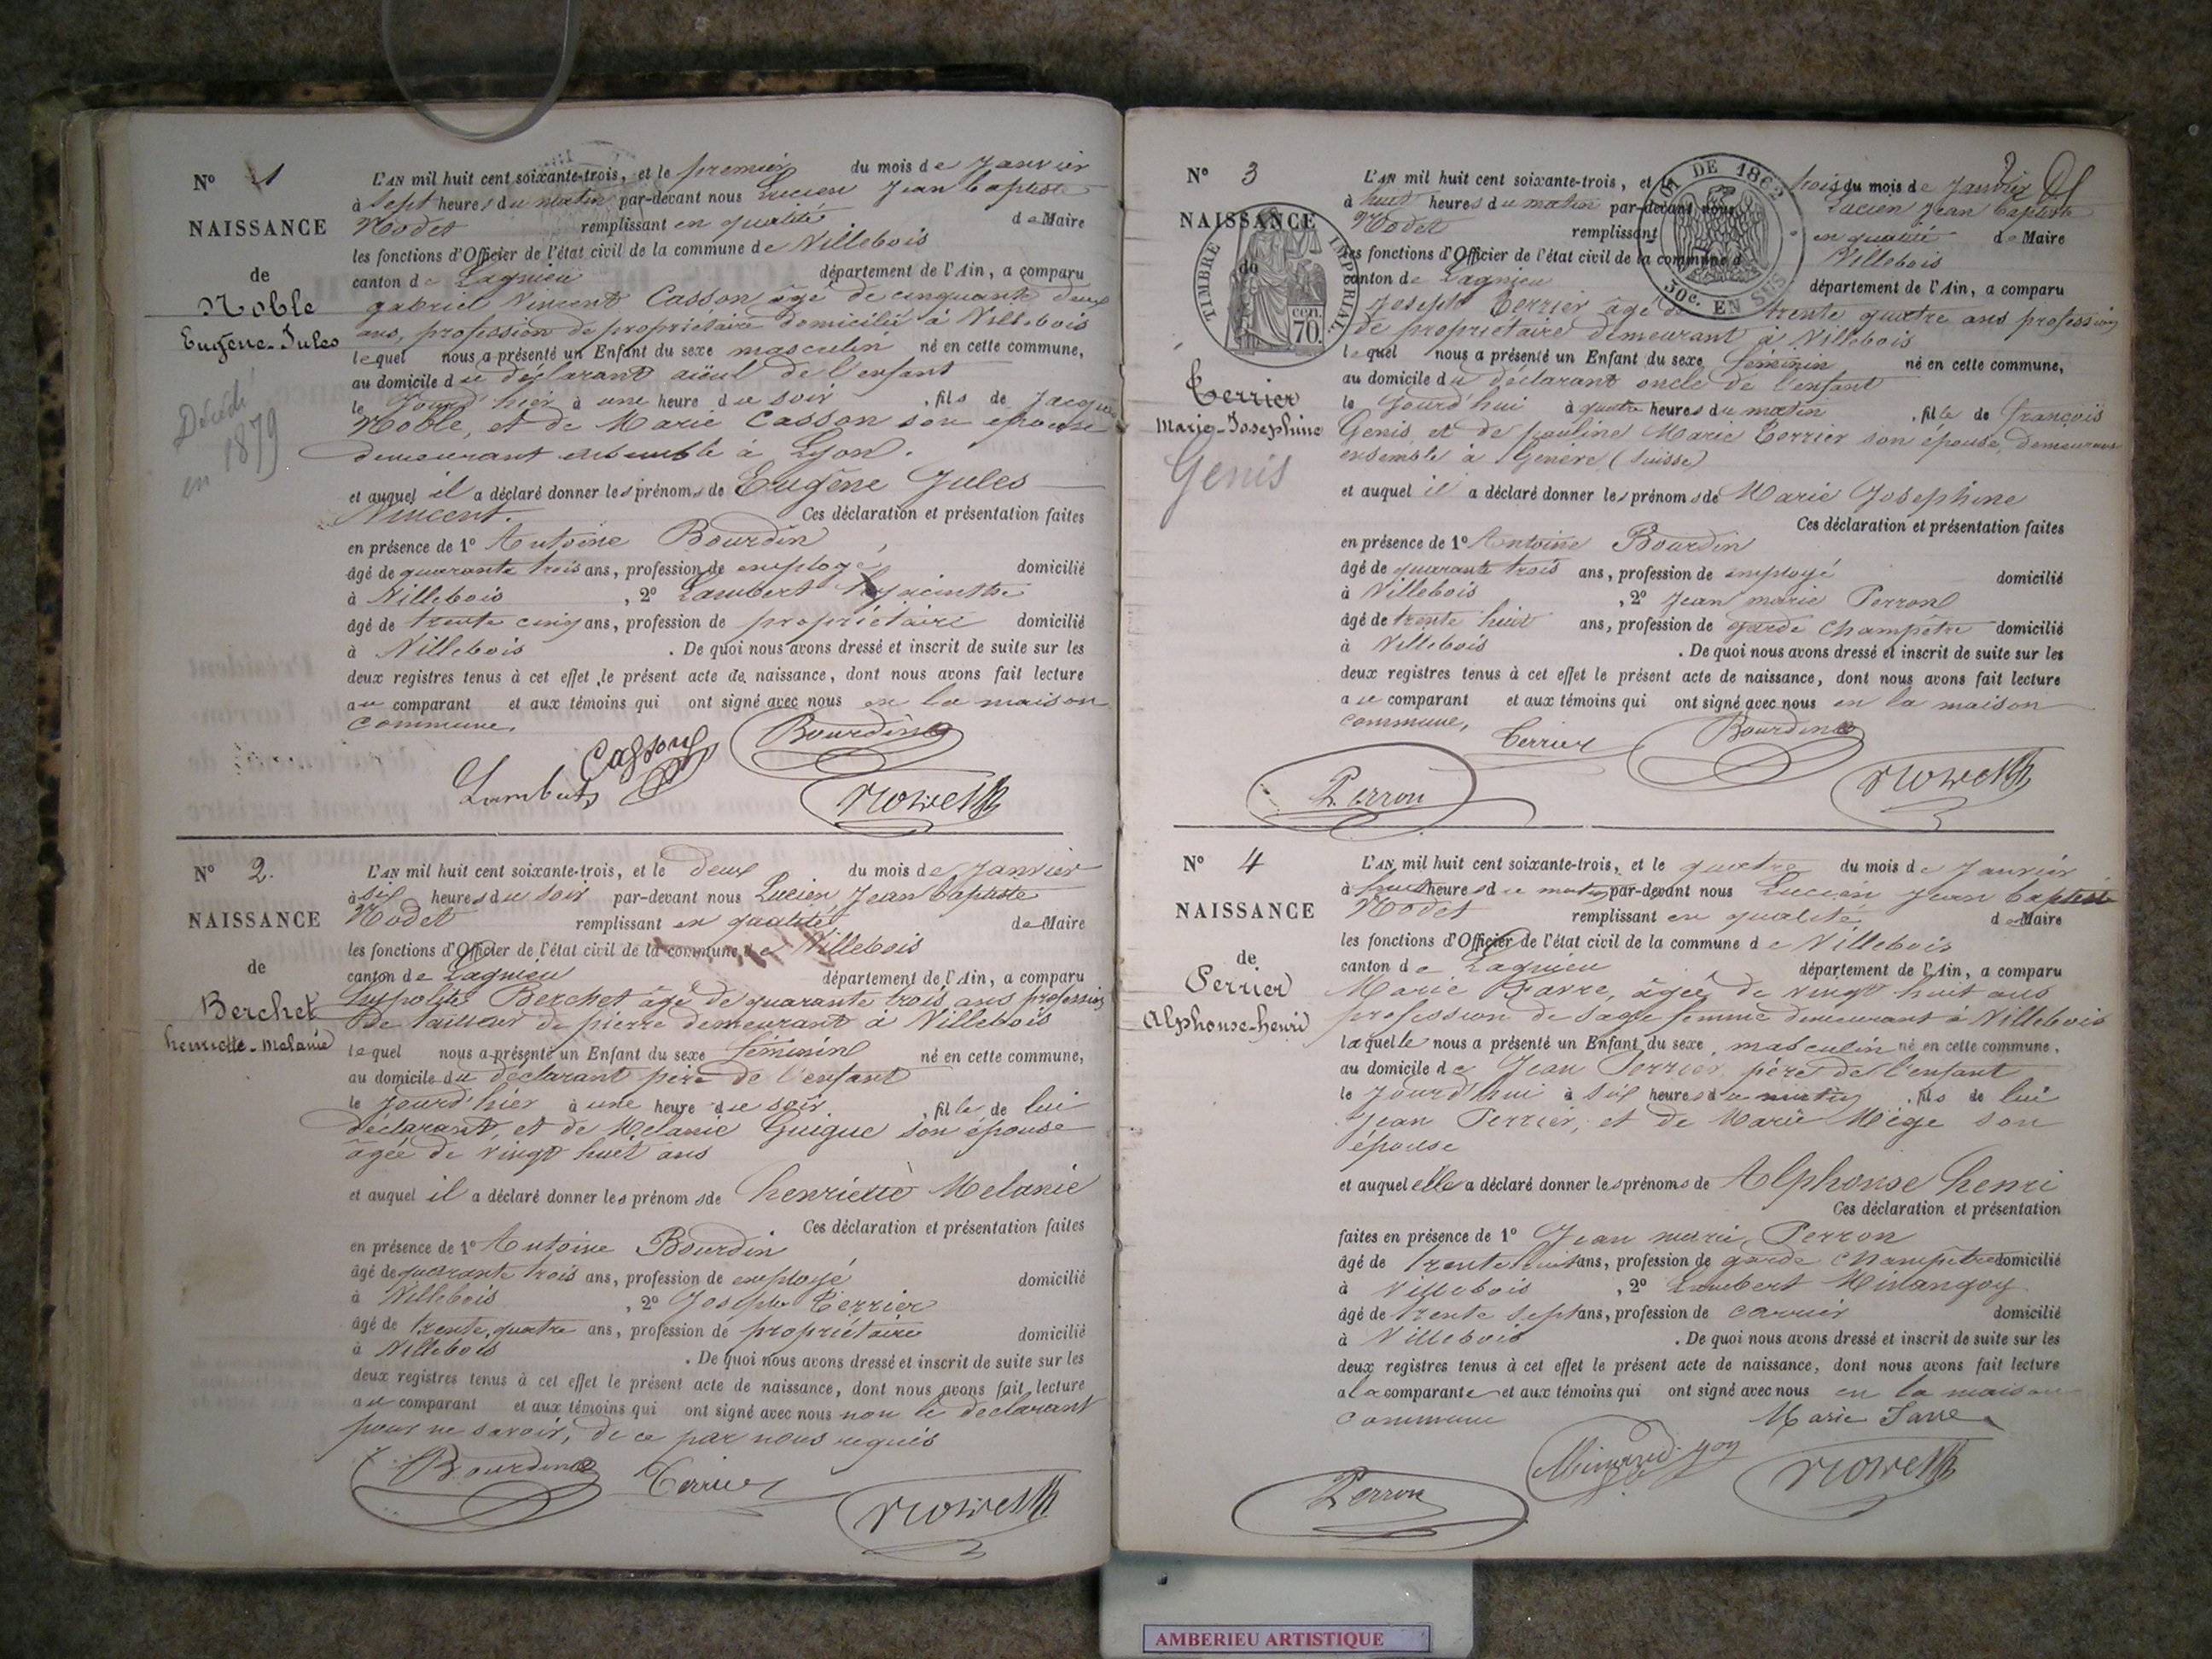 N° 1
NAISSANCE
de
Noble
Eugène-Jules
Décédé
en 1879
L'AN mil huit cent soixante-trois, et le premier du mois de Janvier
à sept heures du matin par-devant nous Lucien Jean baptiste
Nodet remplissant en qualité de Maire
les fonctions d'Officier de l'état civil de la commune de Villebois
canton de Lagnieu département de l'Ain, a comparu
gabriel Vincent Casson âgé de cinquante deux
ans, profession de propriétaire domicilié à Villebois
lequel nous a présenté un Enfant du sexe masculin né en cette commune,
au domicile du déclarant aïeul de l'enfant
le Jourd'hier à une heure du soir, fils de Jacques
Noble, et de Marie Casson son épouse
demeurant ensemble à Lyon.
et auquel il a déclaré donner les prénoms de Eugène Jules
Vincent. Ces déclaration et présentation faites
en présence de 1° Antoine Bourdin
âgé de quarante trois ans, profession de employé domicilié
à Villebois, 2° Lambert hyacinthe
âgé de trente cinq ans, profession de propriétaire domicilié
à Villebois. De quoi nous avons dressé et inscrit de suite sur les
deux registres tenus à cet effet le présent acte de naissance, dont nous avons fait lecture
au comparant et aux témoins qui ont signé avec nous en la maison
commune.
Casson Bourdin
Lambert
N° 2.
NAISSANCE
de
Berchet
henriette-Melanie
L'AN mil huit cent soixante-trois, et le deux du mois de Janvier
à six heures du soir par-devant nous Lucien Jean baptiste
Nodet remplissant en qualité de Maire
les fonctions d'Officier de l'état civil de la commune de Villebois
canton de Lagnieu département de l'Ain, a comparu
hypolite Berchet âgé de quarante trois ans profession
de tailleur de pierre demeurant à Villebois
lequel nous a présenté un Enfant du sexe féminin né en cette commune,
au domicile du déclarant père de l'enfant
le Jourd'hier à une heure du soir, fille de lui
déclarant, et de Mélanie Guigue son épouse
âgée de vingt huit ans
et auquel il a déclaré donner les prénoms de henriette Melanie
Ces déclaration et présentation faites
en présence de 1° Antoine Bourdin
âgé de quarante trois ans, profession de employé domicilié
à Villebois, 2° Joseph Terrier
âgé de trente quatre ans, profession de propriétaire domicilié
à Villebois. De quoi nous avons dressé et inscrit de suite sur les
deux registres tenus à cet effet le présent acte de naissance, dont nous avons fait lecture
au comparant et aux témoins qui ont signé avec nous non le déclarant
pour ne savoir, de ce par nous requis
Bourdin Terrier
N° 3
NAISSANCE
de
TIMBRE IMPERIAL
cen. 70.
Terrier
Marie-Josephine
Genis
DE 1862
30c. EN SUS
2
L'AN mil huit cent soixante-trois, et trois du mois de Janvier
à huit heures du matin par-devant nous Lucien Jean baptiste
Nodet remplissant en qualité de Maire
les fonctions d'Officier de l'état civil de la commune d Villebois
canton de Lagnieu département de l'Ain, a comparu
Joseph Terrier âgé de trente quatre ans profession
de propriétaire demeurant à Villebois
lequel nous a présenté un Enfant du sexe féminin né en cette commune,
au domicile du déclarant oncle de l'enfant
le Jourd'hui à quatre heures du matin, fille de françois
Genis et de pauline Marie Terrier son épouse, demeurant
ensemble à Genève (Suisse)
et auquel il a déclaré donner les prénoms de Marie Josephine
Ces déclaration et présentation faites
en présence de 1° Antoine Bourdin
âgé de quarante trois ans, profession de employé domicilié
à Villebois, 2° Jean marie Perron
âgé de trente huit ans, profession de garde champêtre domicilié
à Villebois. De quoi nous avons dressé et inscrit de suite sur les
deux registres tenus à cet effet le présent acte de naissance, dont nous avons fait lecture
au comparant et aux témoins qui ont signé avec nous en la maison
commune,
Terrier Bourdin
Perron
N° 4
NAISSANCE
de
Perrier
Alphonse-henri
L'AN mil huit cent soixante-trois, et le quatre du mois de Janvier
à huit heures du matin par-devant nous Lucien Jean baptiste
Nodet remplissant en qualité de Maire
les fonctions d'Officier de l'état civil de la commune de Villebois
canton de Lagnieu département de l'Ain, a comparu
Marie Favre, âgée de vingt huit ans
profession de sage femme demeurant à Villebois
laquelle nous a présenté un Enfant du sexe masculin né en cette commune,
au domicile de Jean Perrier père de l'enfant
le Jourd'hui à six heures du matin, fils de lui
Jean Perrier, et de Marie Mège son
épouse
et auquel elle a déclaré donner les prénoms de Alphonse henri
Ces déclaration et présentation
faites en présence de 1° Jean marie Perron
âgé de trente huit ans, profession de garde champêtre domicilié
à Villebois, 2° Lambert
âgé de trente sept ans, profession de carrier domicilié
à Villebois. De quoi nous avons dressé et inscrit de suite sur les
deux registres tenus à cet effet le présent acte de naissance, dont nous avons fait lecture
a la comparante et aux témoins qui ont signé avec nous en la maison
commune Marie Favre
Perron
AMBERIEU ARTISTIQUE